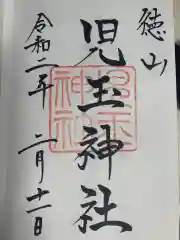 徳山
児玉神社
児玉神社
令和二年
二月十一日